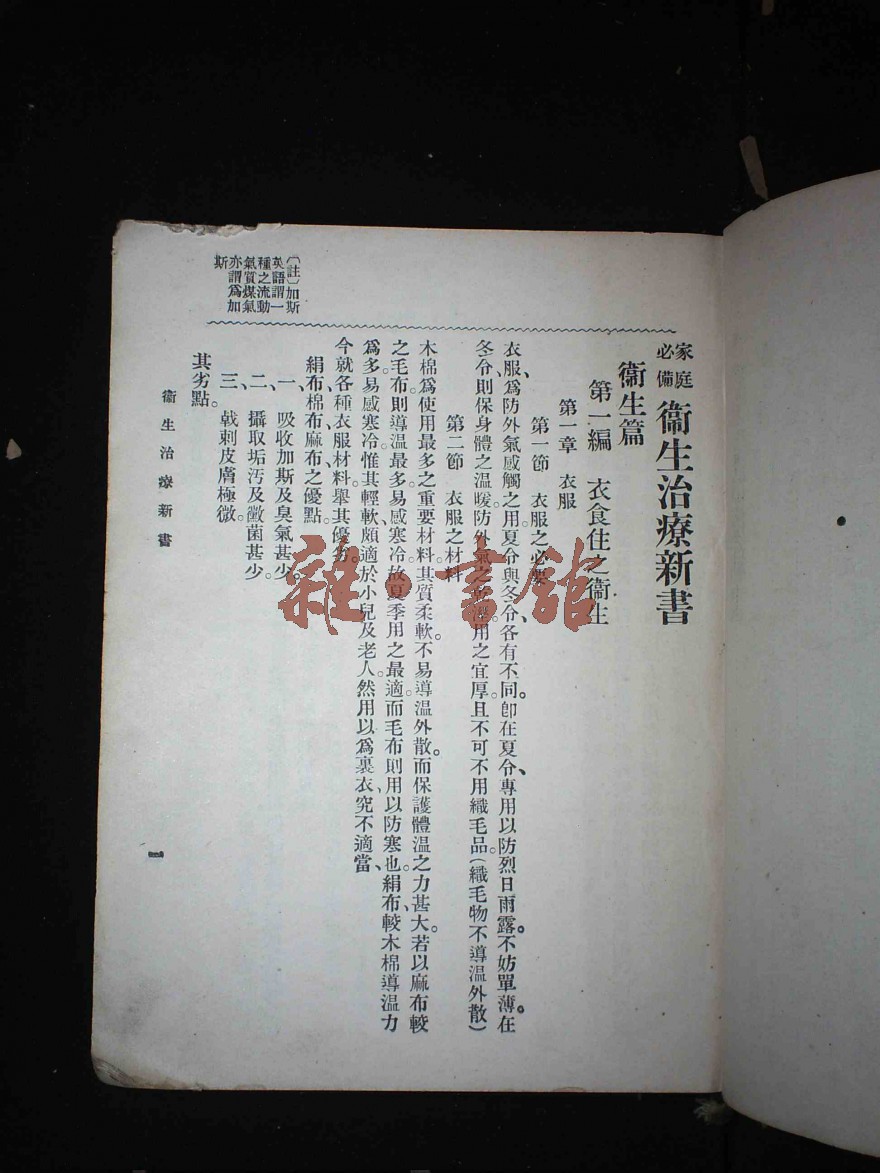 家庭
必備
衞生治療新書
衞生篇
第一編　衣食住之衞生
第一章　衣服
第一節　衣服之必要
衣服、爲防外氣感觸之用。夏令與冬令、各有不同。卽在夏令、專用以防烈日雨露。不妨單薄。在
冬令則保身體之温暖防外氣之 用之宜厚。且不可不用織毛品。(織毛物不導温外散)
第二節　衣服之材料
木棉爲使用最多之重要材料。其質柔軟。不易導温外散。而保護體温之力甚大。若以麻布較
之毛布。則導温最多。易感寒冷。故夏季用之最適。而毛布則用以防寒也。絹布、較木棉導温力
爲多。易感寒冷。惟其輕軟。頗適於小兒及老人。然用以爲裏衣、究不適當、
今就各種衣服材料。舉其優劣。
絹布棉布麻布之優點。
一、吸收加斯及臭氣甚少。
二、攝取垢汚及黴菌甚少。
三、戟刺皮膚極微。
其劣點。
〔註〕加斯
英語謂一
種之流動
氣質煤氣
亦謂爲加
斯
衞生治療新書
一
雜·書館